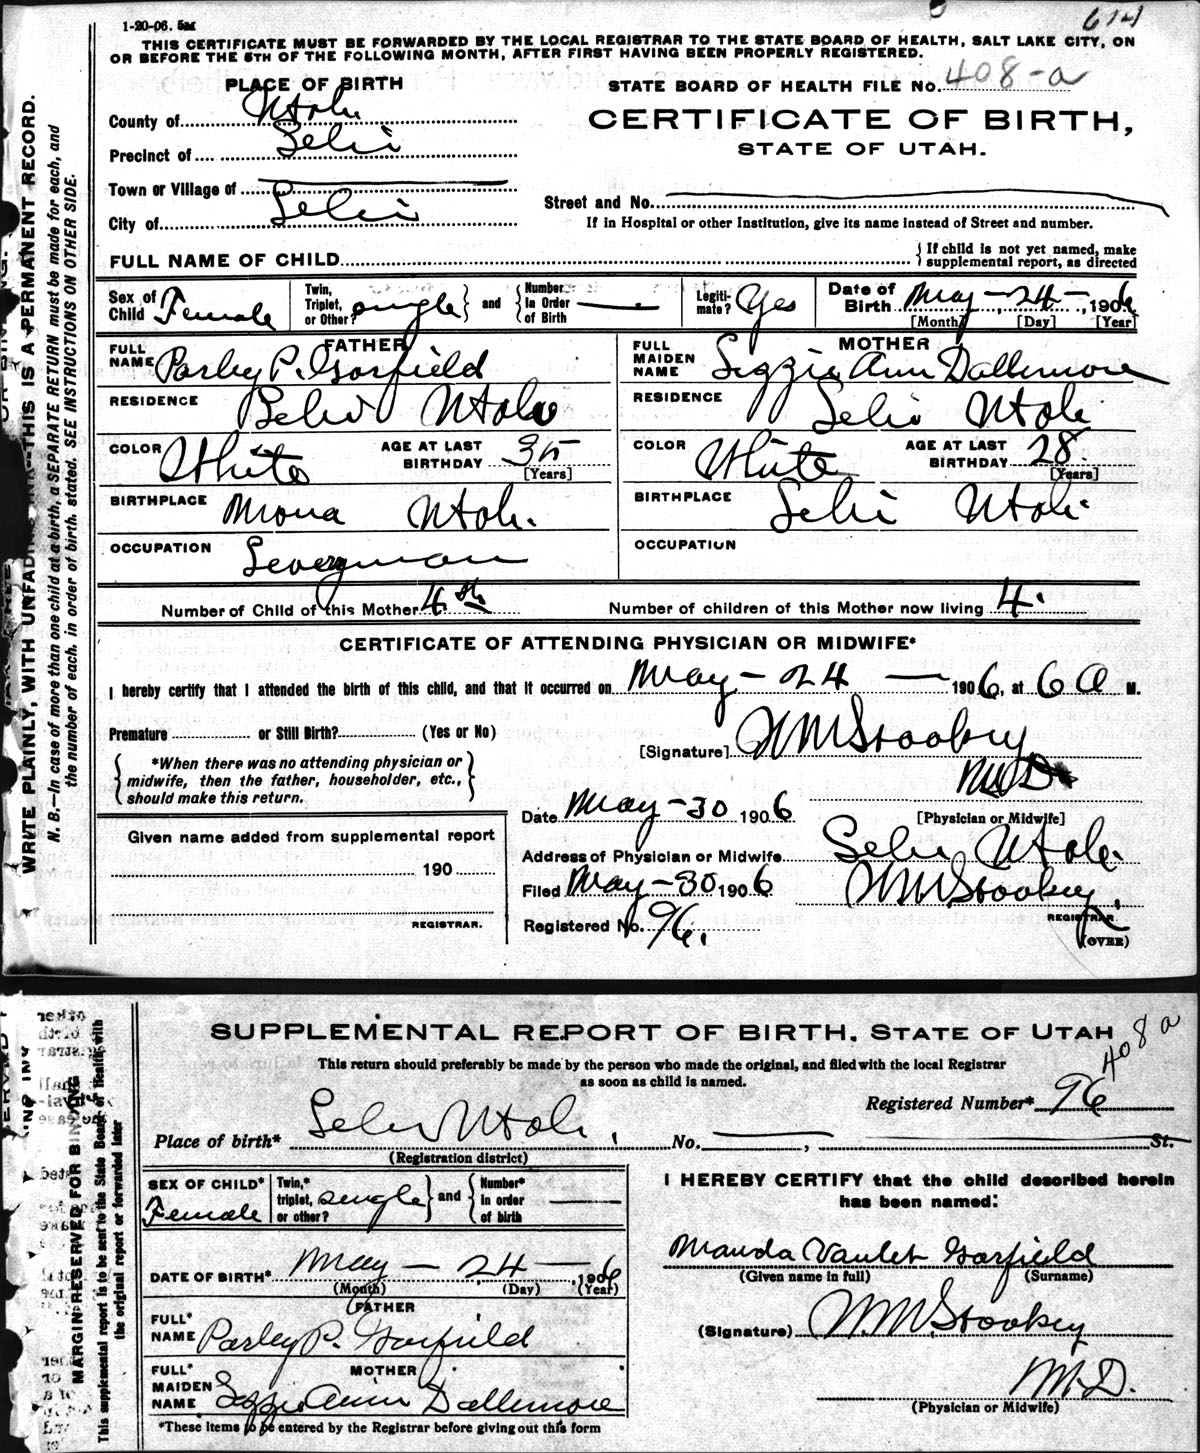 1-20-06. 5M
614
THIS CERTIFICATE MUST BE FORWARDED BY THE LOCAL REGISTRAR TO THE STATE BOARD OF HEALTH, SALT LAKE CITY, ON
OR BEFORE THE 5TH OF THE FOLLOWING MONTH, AFTER FIRST HAVING BEEN PROPERLY REGISTERED.
PLACE OF BIRTH
STATE BOARD OF HEALTH FILE No. 408-a
County of Utah
CERTIFICATE OF BIRTH,
Precinct of Lehi
STATE OF UTAH.
Town or Village of
Street and No.
City of Lehi
If in Hospital or other Institution, give its name instead of Street and number.
FULL NAME OF CHILD
If child is not yet named, make
supplemental report, as directed
Sex of Child Female
Twin, Triplet, or Other? single and Number In Order of Birth
Legiti-mate? Yes
Date of Birth May - 24 - , 1906
[Month] [Day] [Year]
FATHER
FULL NAME Parley P. Garfield
MOTHER
FULL MAIDEN NAME Lizzie Ann Dallimore
RESIDENCE Lehi Utah
RESIDENCE Lehi Utah
COLOR White AGE AT LAST BIRTHDAY 35 [Years]
COLOR White AGE AT LAST BIRTHDAY 28 [Years]
BIRTHPLACE Mona Utah.
BIRTHPLACE Lehi Utah.
OCCUPATION
OCCUPATION
Number of Child of this Mother 4th
Number of children of this Mother now living 4.
CERTIFICATE OF ATTENDING PHYSICIAN OR MIDWIFE*
I hereby certify that I attended the birth of this child, and that it occurred on May - 24 — 1906, at 6 a M.
Premature or Still Birth? (Yes or No)
[Signature] W M Stookey
M.D.
*When there was no attending physician or
midwife, then the father, householder, etc.,
should make this return.
Date May - 30 1906
[Physician or Midwife]
Given name added from supplemental report
190
REGISTRAR.
Address of Physician or Midwife Lehi Utah.
Filed May - 30 1906 W M Stookey,
REGISTRAR.
Registered No. 96.
(OVER)
WRITE PLAINLY, WITH UNFADING INK—THIS IS A PERMANENT RECORD.
N. B.—In case of more than one child at a birth, a SEPARATE RETURN must be made for each, and
the number of each, in order of birth, stated. SEE INSTRUCTIONS ON OTHER SIDE.
SUPPLEMENTAL REPORT OF BIRTH, STATE OF UTAH
408 a
This return should preferably be made by the person who made the original, and filed with the local Registrar
as soon as child is named.
Registered Number* 96
Place of birth* Lehi Utah, No. , St.
(Registration district)
SEX OF CHILD* Female
Twin,* triplet, or other? single and Number* in order of birth
I HEREBY CERTIFY that the child described herein
has been named:
DATE OF BIRTH* May - 24 - , 1906
(Month) (Day) (Year)
Manda Vaulet Garfield
(Given name in full) (Surname)
FATHER
FULL* NAME Parley P. Garfield
(Signature) W. M. Stookey
M.D.
(Physician or Midwife)
MOTHER
FULL* MAIDEN NAME Lizzie Ann Dallimore
*These items to be entered by the Registrar before giving out this form
MARGIN RESERVED FOR BINDING
This supplemental report is to be sent to the State Board of Health with
the original report or forwarded later